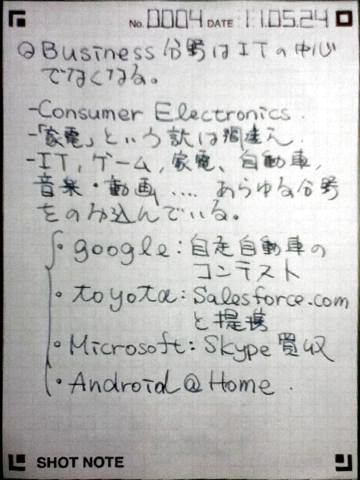 No. 0004 DATE 11.05.24
@Business 分野はITの中心
でなくなる。
-Consumer Electronics.
-「家電」という訳は間違え
-IT, ゲーム, 家電、自動車,
音楽・動画 .... あらゆる分野
をのみ込んでいる。
・google: 自走自動車の
コンテスト
・toyota: Salesforce.com
と提携
・Microsoft: Skype買収
・Android@Home.
SHOT NOTE